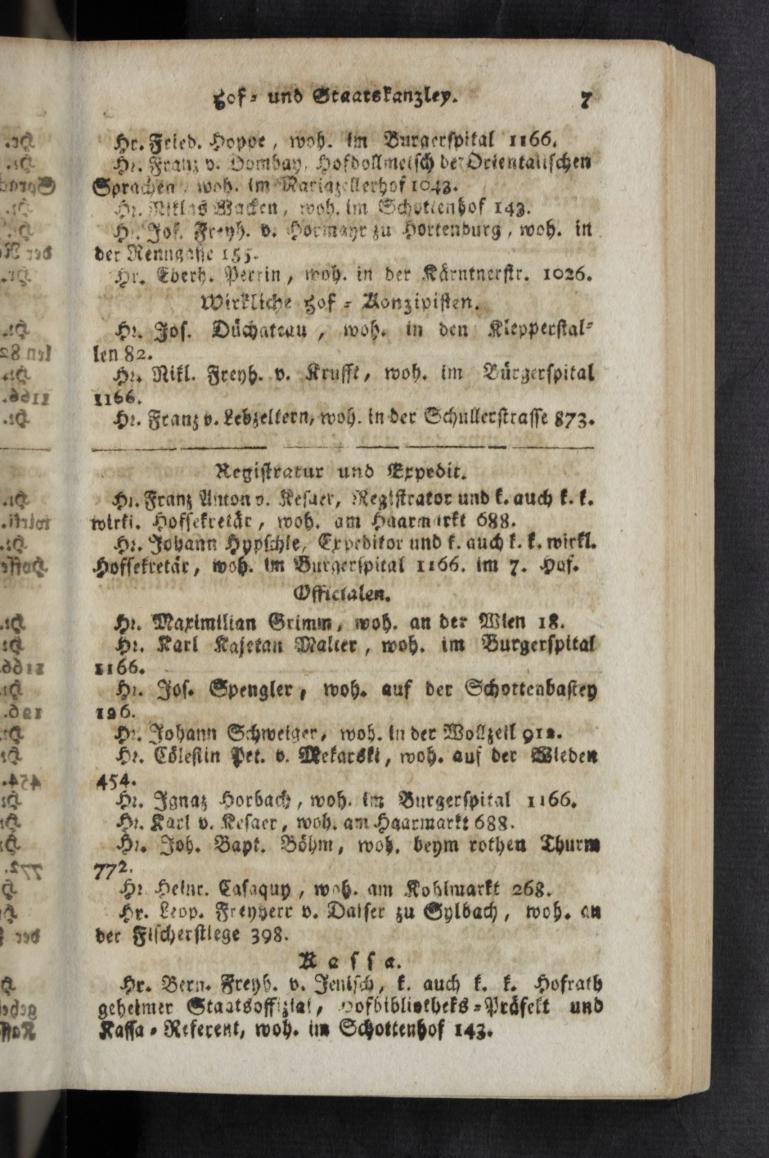 Hof- und Staatskanzley. 7
Hr. Fried. Hoppe, woh. im Burgerspital 1166.
Hr. Franz v. Dombay, Hofdollmetsch der Orientalischen
Sprachen, woh. im Mariazellerhof 1043.
Hr. Niklas Wacken, woh. im Schottenhof 143.
Hr. Jos. Freyh. v. Hormayr zu Hortenburg, woh. in
der Renngasse 155.
Hr. Eberh. Perrin, woh. in der Kärntnerstr. 1026.
Wirkliche Hof-Konzipisten.
Hr. Jos. Düchateau, woh. in den Klepperstal-
len 82.
Hr. Nikl. Freyh. v. Krufft, woh. im Bürgerspital
1166.
Hr. Franz v. Lebzeltern, woh. in der Schullerstrasse 873.
Registratur und Expedit.
Hr. Franz Anton v. Kesaer, Registrator und k. auch k. k.
wirkl. Hofsekretär, woh. am Haarmarkt 688.
Hr. Johann Hypschle, Expeditor und k. auch k. k. wirkl.
Hofsekretär, woh. im Burgerspital 1166. im 7. Hof.
Officialen.
Hr. Maximilian Grimm, woh. an der Wien 18.
Hr. Karl Kajetan Malter, woh. im Burgerspital
1166.
Hr. Jos. Spengler, woh. auf der Schottenbastey
126.
Hr. Johann Schweiger, woh. in der Wollzeil 912.
Hr. Cölestin Pet. v. Mekarski, woh. auf der Wieden
454.
Hr. Ignaz Horbach, woh. im Burgerspital 1166.
Hr. Karl v. Kesaer, woh. am Haarmarkt 688.
Hr. Joh. Bapt. Böhm, woh. beym rothen Thurm
772.
Hr. Heinr. Casaquy, woh. am Kohlmarkt 268.
Hr. Leop. Freyherr v. Daiser zu Sylbach, woh. an
der Fischerstiege 398.
Kassa.
Hr. Bern. Freyh. v. Jenisch, k. auch k. k. Hofrath
geheimer Staatsoffizial, Hofbibliotheks-Präfekt und
Kassa-Referent, woh. im Schottenhof 143.